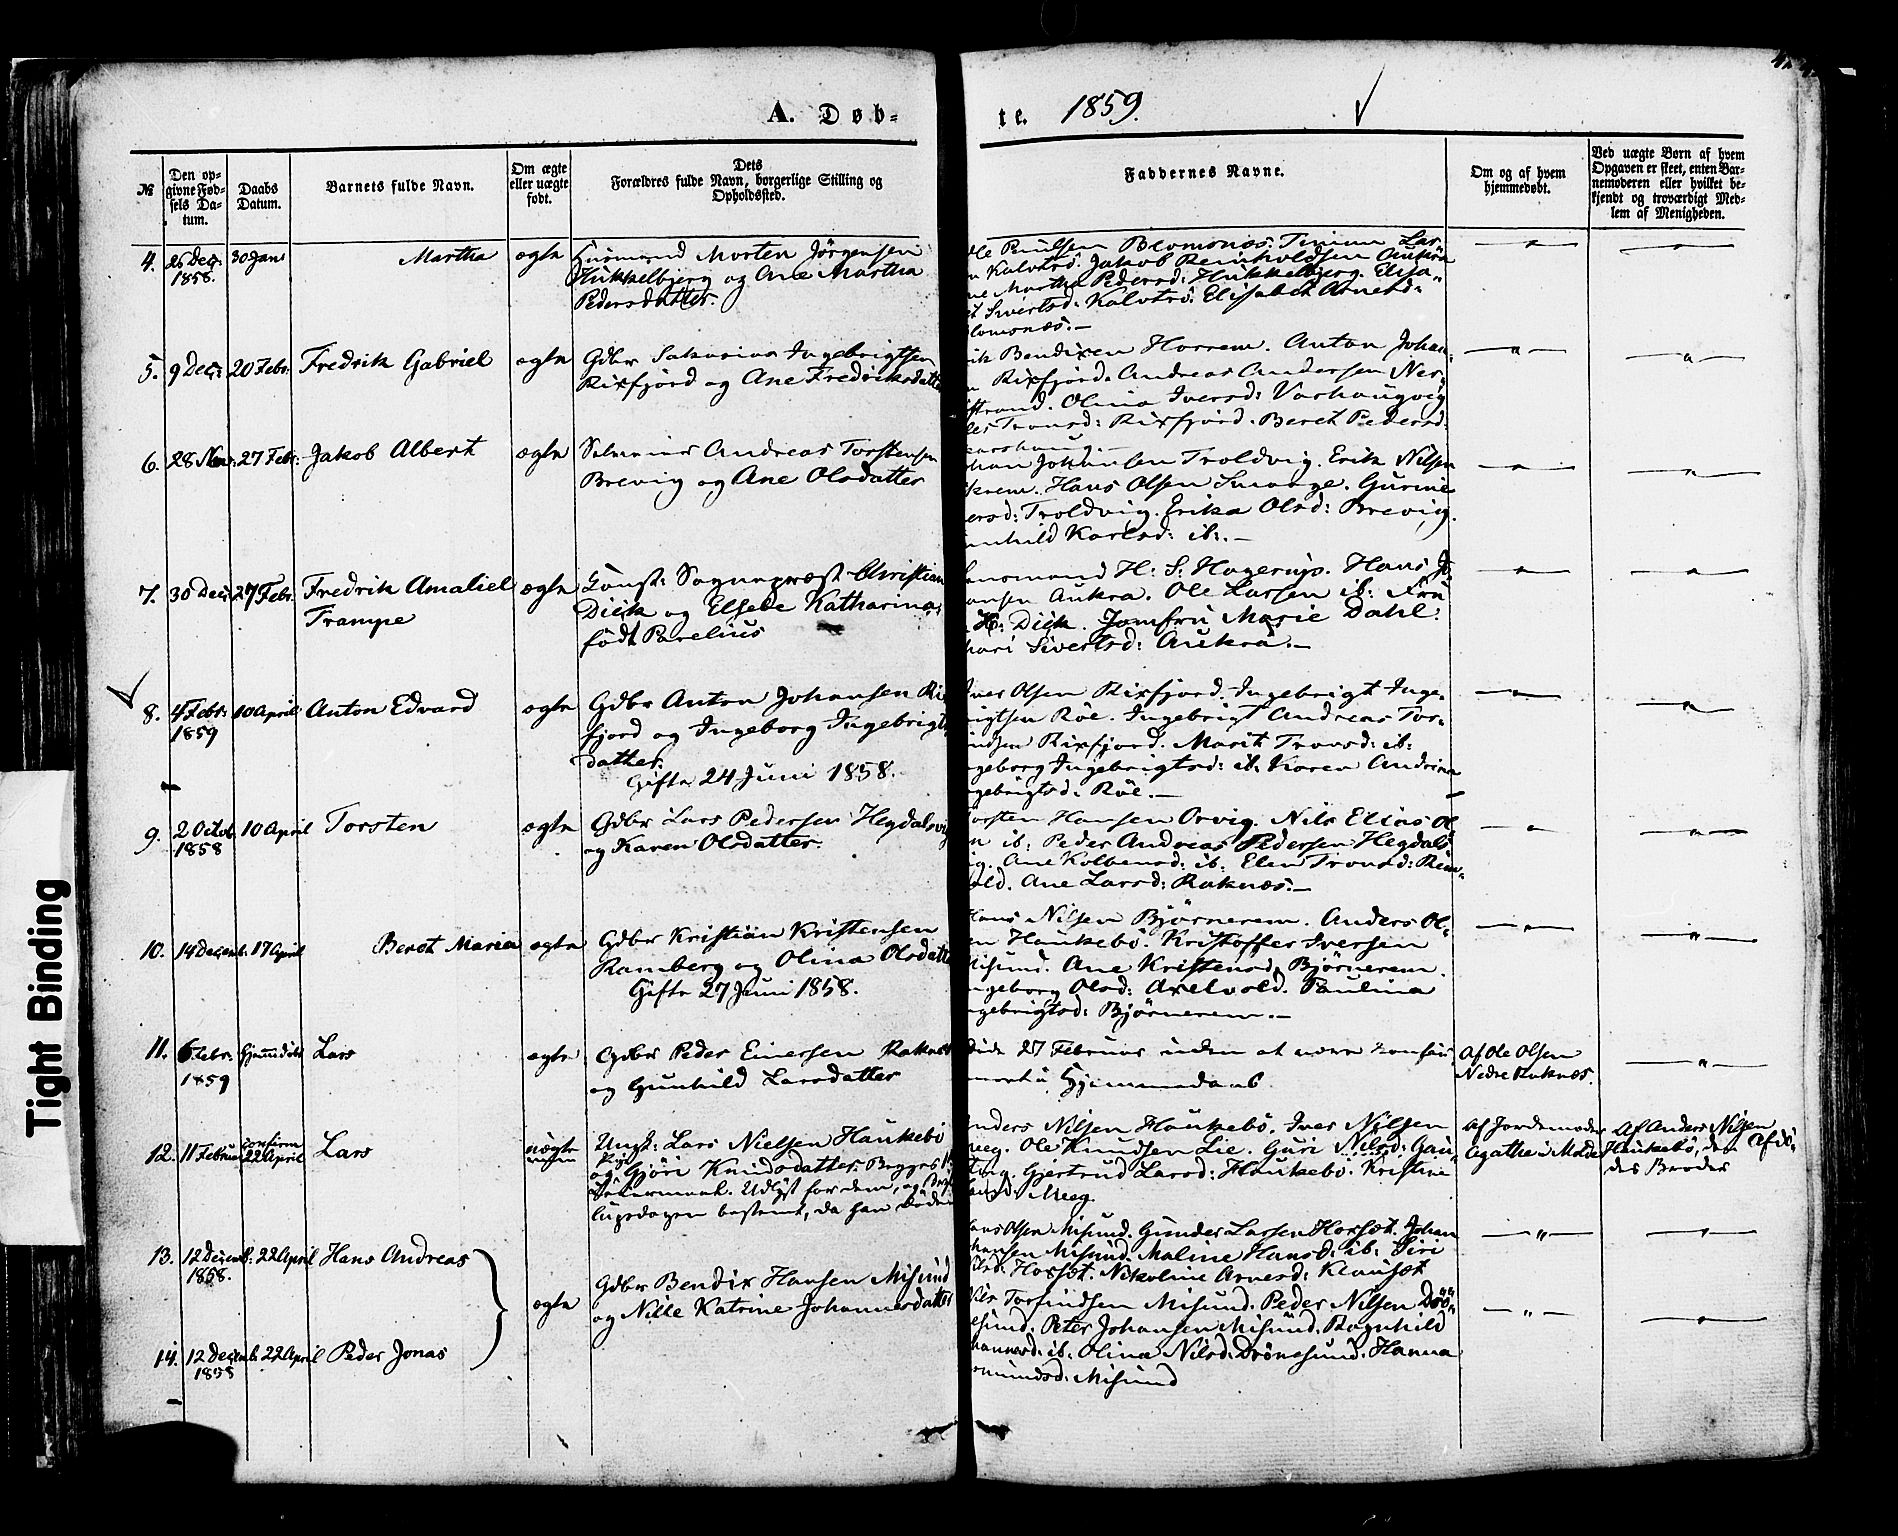 A. Døb=
te. 1859.
№
Den op=
givne Fød=
sels Da=
tum.
Daabs
Datum.
Barnets fulde Navn.
Om ægte
eller uægte
født.
Dets
Forældres fulde Navn, borgerlige Stilling og
Opholdssted.
Faddernes Navne.
Om og af hvem
hjemmedøbt.
Ved uægte Børn af hvem
Opgaven er skeet, enten Bar=
nemoderen eller hvilket be=
kjendt og troværdigt Med=
lem af Menigheden.
4. 26 Dec: 30 Jan: Martha ægte Husmand Morten Jørgensen
1858. Hukkelbjerg og Ane Martha
Pedersdatter.
Paulsen Blomsnæs. Lar-
Kalvtrö. Jakob Reinholdsen Aukra
Martha Pedersd: Hukkelbjerg. Elisa-
Sivertsd: Kalvtrö. Elisabet Arnesd:
lomsnæs.—
5. 9 Dec: 20 Febr: Fredrik Gabriel ægte Gdbr Sakarias Ingebrigtsen
Rixfjord og Ane Fredriksdatter
rik Bendixen Horrem. Anton Johan-
Rixfjord. Andreas Andersen Ner-
strand. Olina Iversd: Varhaugvig
Tronsd: Rixfjord. Beret Pedersd:
6. 28 27 Febr: Jakob Albert ægte Andreas Torstensen
Brevig og Ane Olsdatter
han Johansen Troldvig. Erik Nilsen
krem. Hans Olsen Smaage. Gurine
ersd: Troldvig. Erika Olsd: Brevig.
unhild Karlsd: ib:.—
7. 30 Dec: 27 Febr. Fredrik Amaliel ægte Const: Sognepræst Christian
Trampe Dick og Elsebe Katharina
født Barelius
ensmand H: S: Hagerup. Hans Jo-
ansen Aukra. Ole Larsen ib: Fru
H: Dick. Jomfru Marie Dahl.
Sivertsd: Aukra.—
8. 4 Febr: 10 April Anton Edvard ægte Gdbr Anton Johansen Rix
1859 fjord og Ingeborg Ingebrigts
datter.
Gifte 24 Juni 1858.
Iver Olsen Rixfjord. Ingebrigt Inge-
rigtsen Röe. Ingebrigt Andreas Tor-
indsen Rixfjord. Marit Tronsd: ib:
ngeborg Ingebrigtsd: ib: Karen Andrina
ngebrigtsd: Röe.—
9. 2 Octob. 10 April Torsten ægte Gdbr Lars Pedersen Hegdalsvig
1858 og Karen Olsdatter.
orsten Hansen Orvig. Nils Elias Ol
n ib: Peder Andreas Pedersen Hegdals
ig. Ane Kolbensd: ib: Elen Tronsd: Rem-
old. Ane Larsd: Raknæs.—
10. 14 Decemb. 17 April Beret Maria ægte Gdbr Kristian Kristensen
Ramberg og Olina Olsdatter
Gifte 27 Juni 1858.
Hans Nilsen Bjørnerem. Anders Ol-
en Haukebö. Kristoffer Iversen
Misund. Ane Kristensd: Bjørnerem.
ngeborg Olsd: Axelvold. Paulina
ngebrigtsd: Bjørnerem.—
11. 6 Febr: hjemmedöbt Lars ægte Gdbr Peder Einersen Raknæs
1859 og Gunhild Larsdatter
Døde 27 Februar uden at være
Hjemmedaab
Af Ole Olsen
Nedre Raknæs.
12. 11 Februar confirm Lars uægte Ungk: Lars Nielsen Haukebö
22 April Pige og Gjöri Knudsdatter. Begges 1ste
Leiermaal. Udlyst for dem, og
lupsdagen bestemt, da han döde
Anders Nilsen Haukebö. Iver Nilsen
Meeg. Ole Knudsen Lie. Guri Nilsd:
Gjertrud Larsd: Haukebö. Kristine
Meeg.
Af Jordemoder
Agathe i Molde
Af Anders Nilsen
Haukebö, den Afdö-
des Broder
13. 12 Decemb: 22 April Hans Andreas
1858.
ægte Gdbr Bendix Hansen Misund
og Nille Katrine Johannesdatter
ans Olsen Misund. Gunder Larsen Horsæt. Johan
hansen Misund. Maline Hansd: ib: Siri
Horsæt. Nikoline Arnesd: Klauset
14. 12 Decemb. 22 April Peder Jonas
1858
Nils Torfindsen Misund. Peder Nilsen Drö-
esund. Peter Johansen Misund. Ragnhild
hannesd: ib: Olina Nilsd: Drönesund. Hanna
omundsd: Misund
Tight Binding